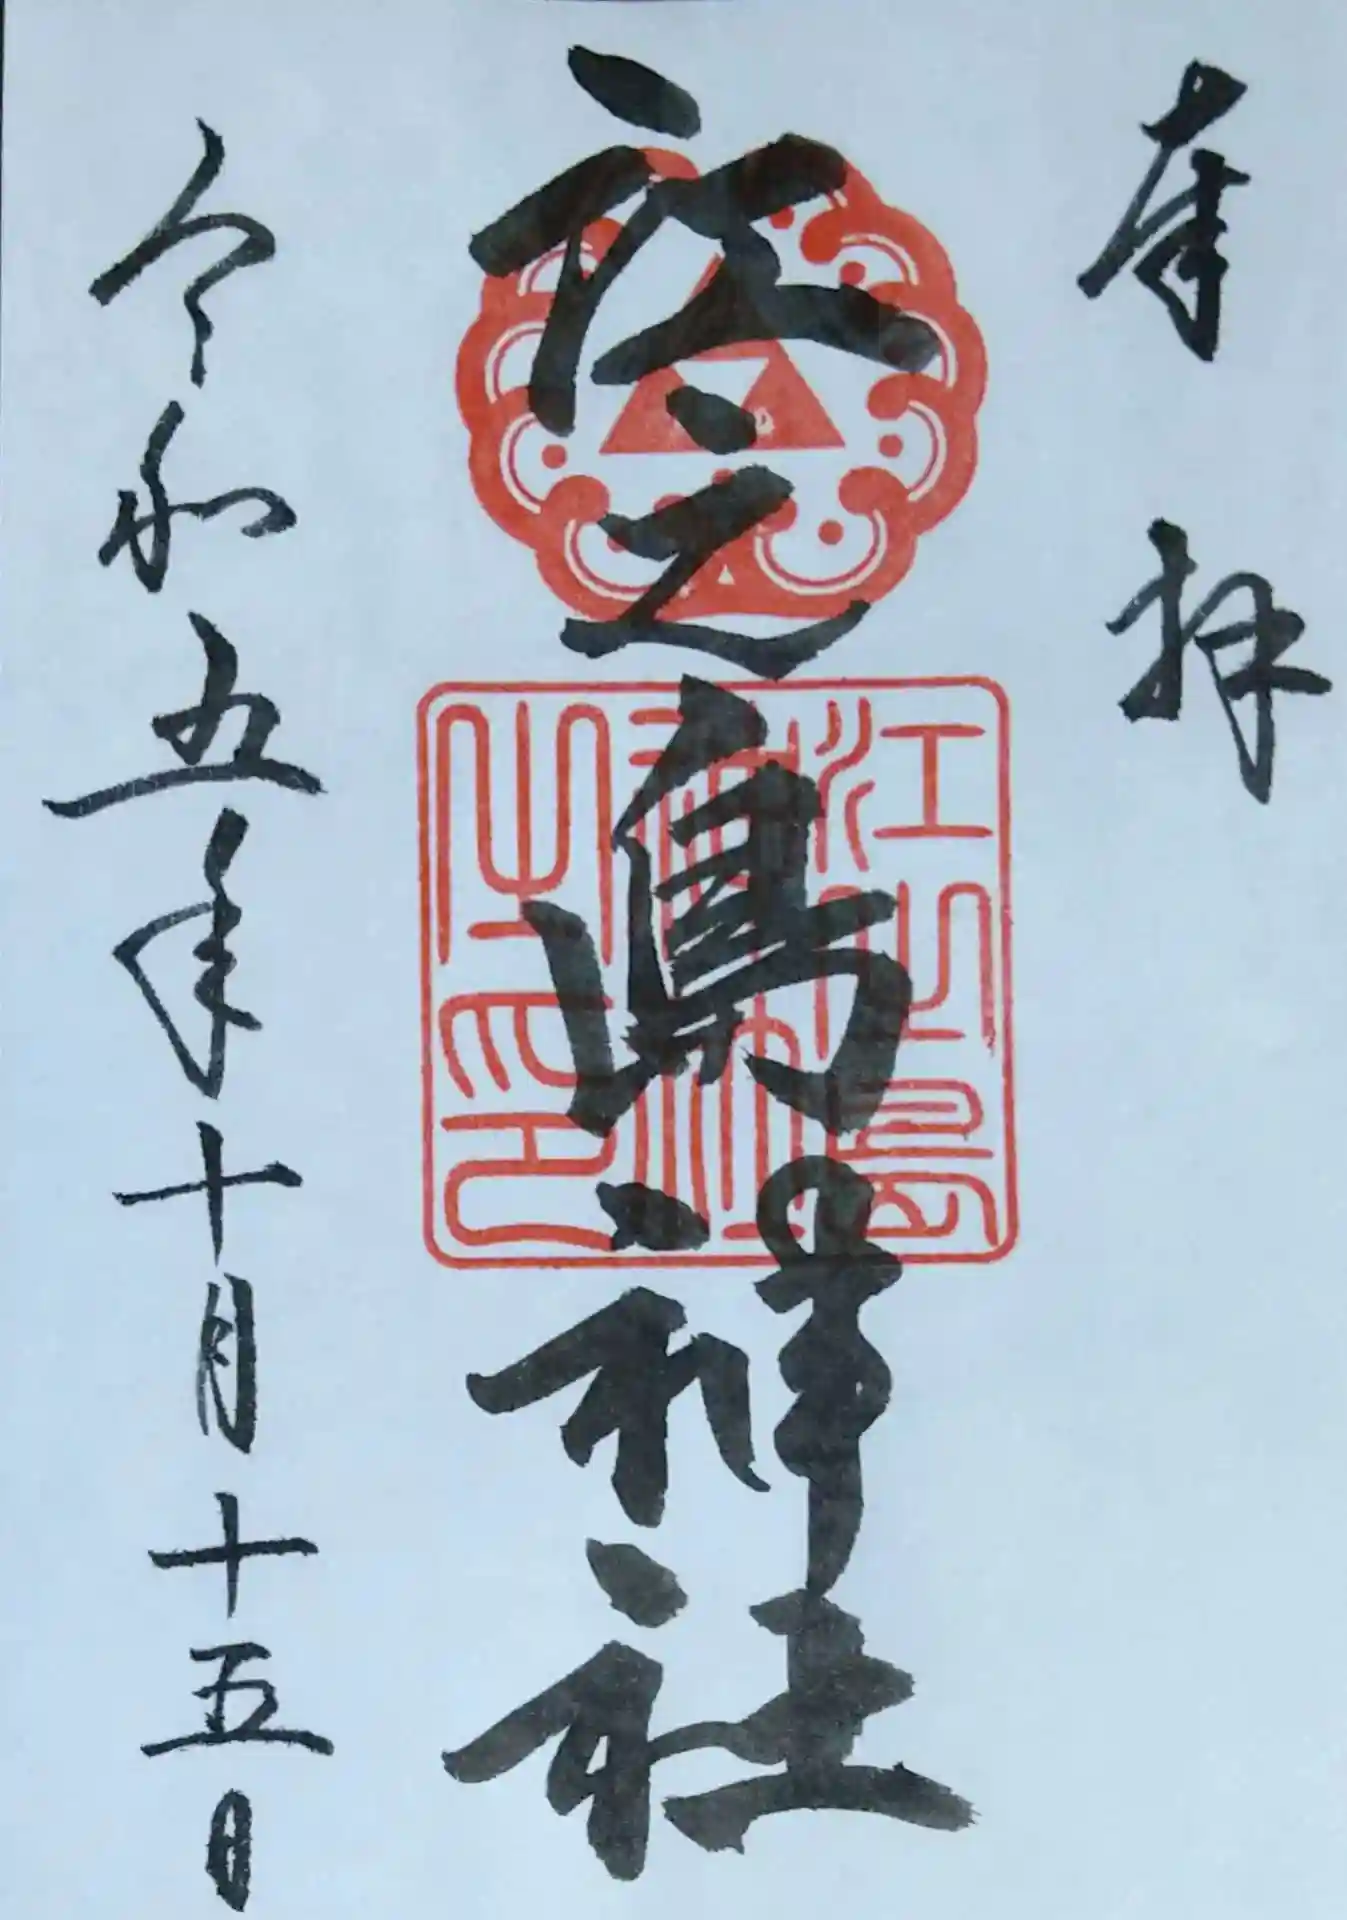 奉拝
江之島神社
江之島神社之印
令和五年十月十五日